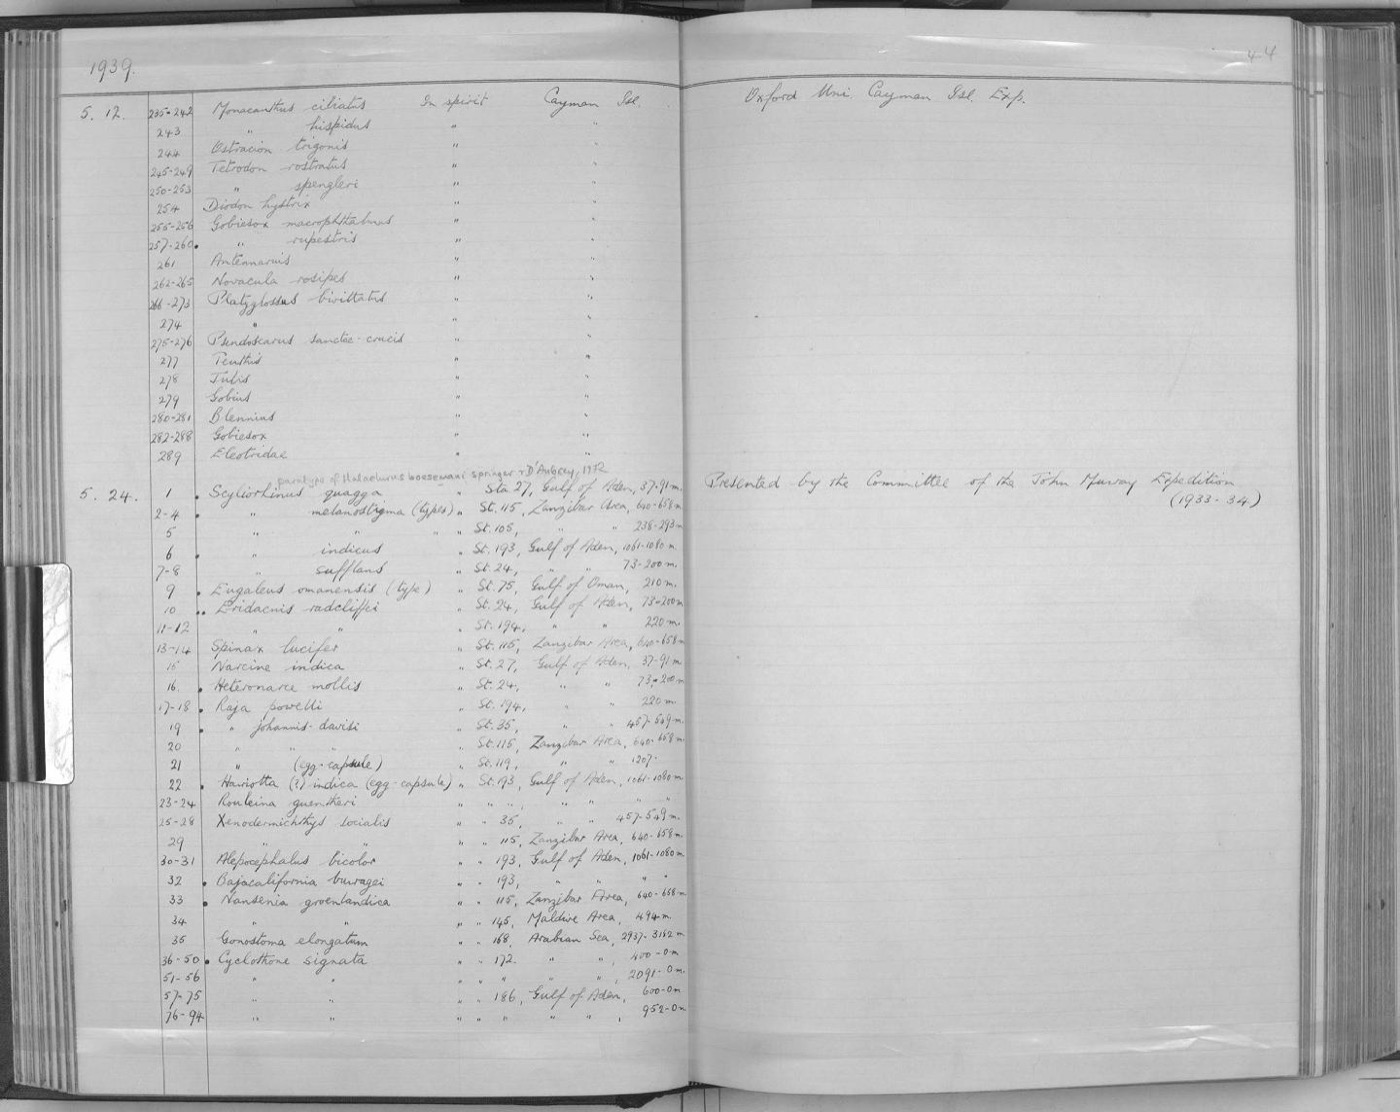 1939.
44
5. 12. 235-242 Monacanthus ciliatus In spirit Cayman Isl. Oxford Uni. Cayman Isl. Exp.
243 " hispidus " "
244 Ostracion trigonis " "
245-249 Tetrodon rostratus " "
250-253 " spengleri " "
254 Diodon hystrix " "
255-256 Gobiesox macrophthalmus " "
257-260 " rupestris " "
261 Antennarius " "
262-265 Novacula rosipes " "
266-273 Platyglossus bivittatus " "
274 " " "
275-276 Pseudoscarus sanctae-crucis " "
277 Teuthis " "
278 Julis " "
279 Gobius " "
280-281 Blennius " "
282-288 Gobiesox " "
289 Eleotridae " "
paratype of Halaelurus boesemani Springer & D'Aubrey, 1972
5. 24. 1 . Scyliorhinus quagga " Sta 27, Gulf of Aden, 37-91 m. Presented by the Committee of the John Murray Expedition
(1933-34)
2-4 . " melanostigma (types) " St. 115, Zanzibar Area, 640-658 m
5 " " " " St. 108, " " 238-293 m
6 . " indicus " St. 193, Gulf of Aden, 1061-1080 m
7-8 " sufflans " St. 24, " " 73-200 m
9 . Eugaleus omanensis (type) " St. 75, Gulf of Oman, 210 m.
10 .. Eridacnis radcliffei " St. 24, Gulf of Aden, 73-200 m
11-12 " " " St. 194, " " 220 m.
13-14 Spinax lucifer " St. 115, Zanzibar Area, 640-658 m
15 Narcine indica " St. 27, Gulf of Aden, 37-91 m
16. . Heteronarce mollis " St. 24, " " 73-200 m
17-18 . Raja powelli " St. 194, " " 220 m
19 . " johannis-davisi " St. 35, " " 457-549 m.
20 " " " " St. 115, Zanzibar Area, 640-658 m
21 " (egg-capsule) " St. 119, " " 1207.
22 . Hariotta (?) indica (egg-capsule) " St. 193, Gulf of Aden, 1061-1080 m
23-24 Rouleina guentheri " " " , " " " "
25-28 Xenodermichthys socialis " " 35, " " 457-549 m.
29 " " " " 115, Zanzibar Area, 640-658 m
30-31 Alepocephalus bicolor " " 193, Gulf of Aden, 1061-1080 m
32 . Bajacalifornia burragei " " 193, " " " "
33 . Nansenia groenlandica " " 115, Zanzibar Area, 640-658 m
34 " " " " 145, Maldive Area, 494 m.
35 Gonostoma elongatum " " 168, Arabian Sea, 2937-3182 m
36-50 . Cyclothone signata " " 172. " " , 400-0 m
51-56 " " " " " " " , 2091-0 m.
57-75 " " " " 186, Gulf of Aden, 600-0 m
76-94 " " " " " " " , 952-0 m